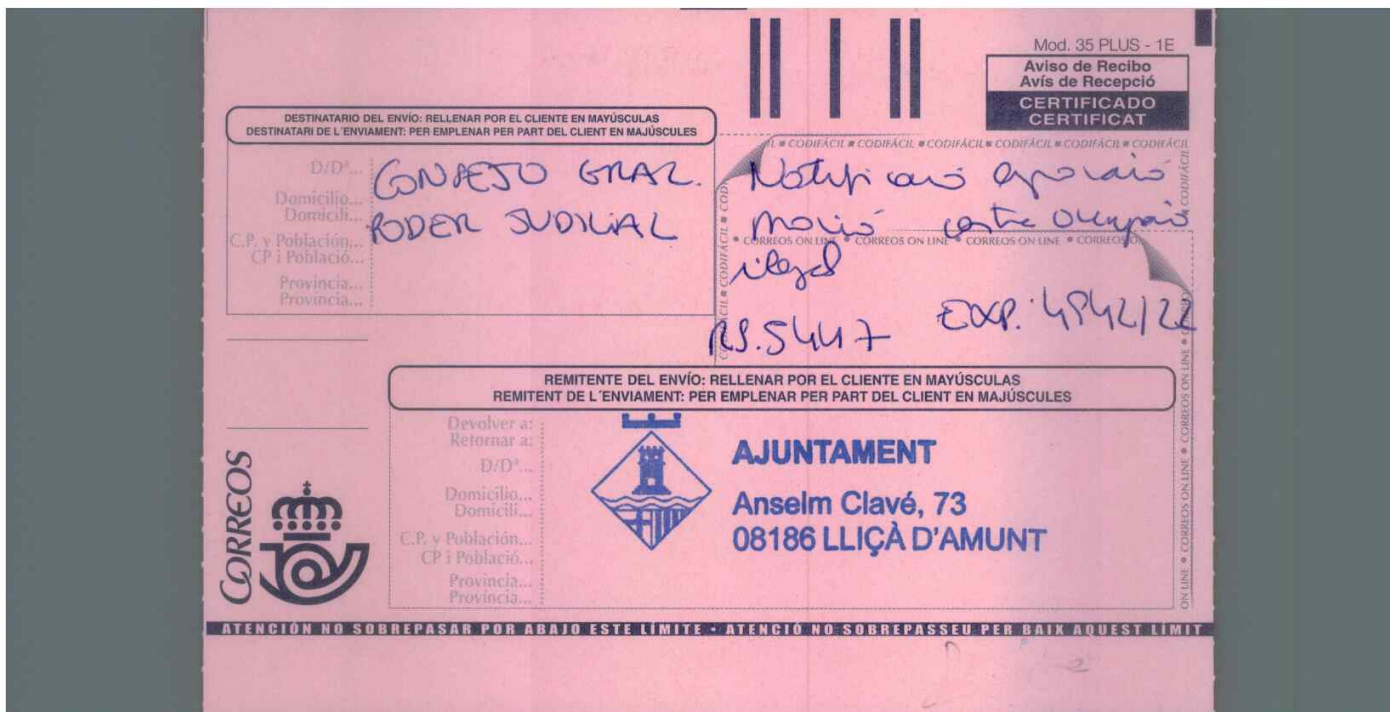 Mod. 35 PLUS - 1E
Aviso de Recibo
Avís de Recepció
CERTIFICADO
CERTIFICAT
DESTINATARIO DEL ENVÍO: RELLENAR POR EL CLIENTE EN MAYÚSCULAS
DESTINATARI DE L´ENVIAMENT: PER EMPLENAR PER PART DEL CLIENT EN MAJÚSCULES
D/Dª...
Domicilio...
Domicili...
C.P. y Población...
CP i Població...
Provincia...
Provincia...
CONSEJO GRAL.
PODER JUDICIAL
CODIFÁCIL ■ CODIFÁCIL ■ CODIFÁCIL ■ CODIFÁCIL ■ CODIFÁCIL ■ CODIFÁCIL
• CORREOS ON LINE • CORREOS ON LINE • CORREOS ON LINE • CORREOS
Notificació aprovació
moció contra ocupació
ilegal
RS.5447 EXP. 4942/22
REMITENTE DEL ENVÍO: RELLENAR POR EL CLIENTE EN MAYÚSCULAS
REMITENT DE L´ENVIAMENT: PER EMPLENAR PER PART DEL CLIENT EN MAJÚSCULES
Devolver a:
Retornar a:
D/Dª...
Domicilio...
Domicili...
C.P. y Población...
CP i Població...
Provincia...
Provincia...
AJUNTAMENT
Anselm Clavé, 73
08186 LLIÇÀ D'AMUNT
CORREOS
ON LINE • CORREOS ON LINE • CORREOS ON LINE • CORREOS ON LINE
ATENCIÓN NO SOBREPASAR POR ABAJO ESTE LÍMITE - ATENCIÓ NO SOBREPASSEU PER BAIX AQUEST LÍMIT